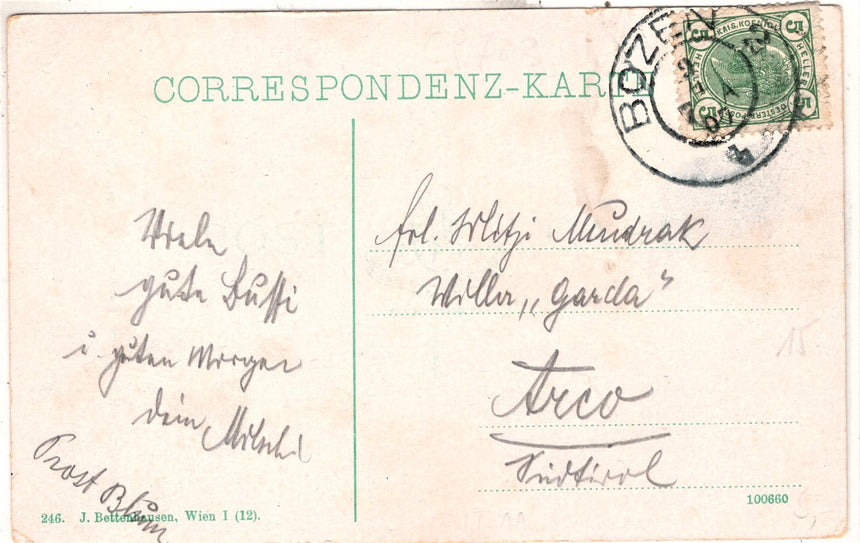 CORRESPONDENZ-KARTE
BOZEN
5 KAIS. KOENIGL. 5
HELLER
5 OESTERR. POST 5
4
Viele
gute Bussi
u. guten Morgen
dein
Prost Blum
frl. Mitzi Mudrak
Villa „Garda“
Arco
Südtirol
15
246. J. Bettenhausen, Wien I (12).
100660